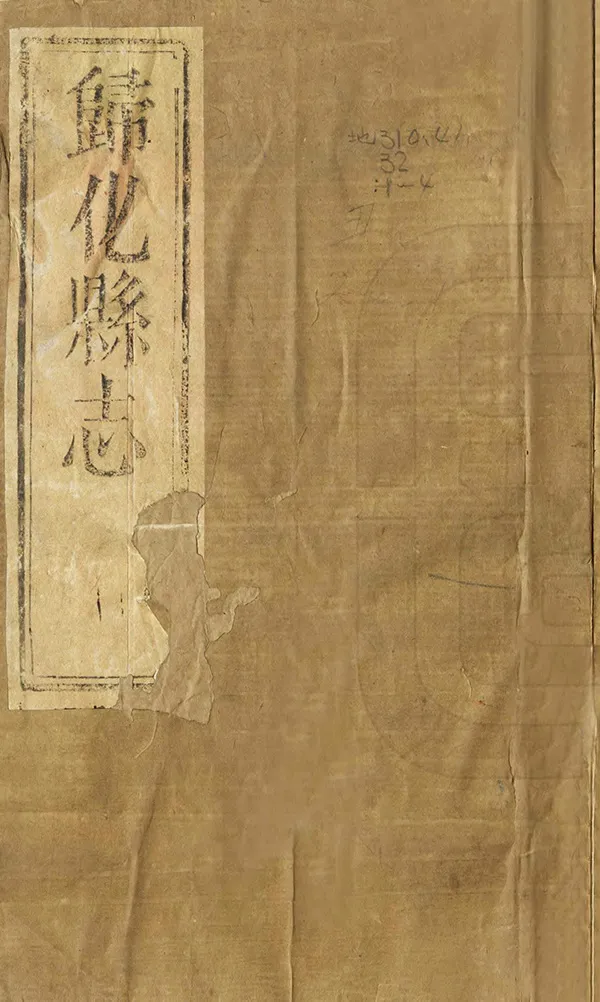 歸化縣志
地310.41
32
:十一4